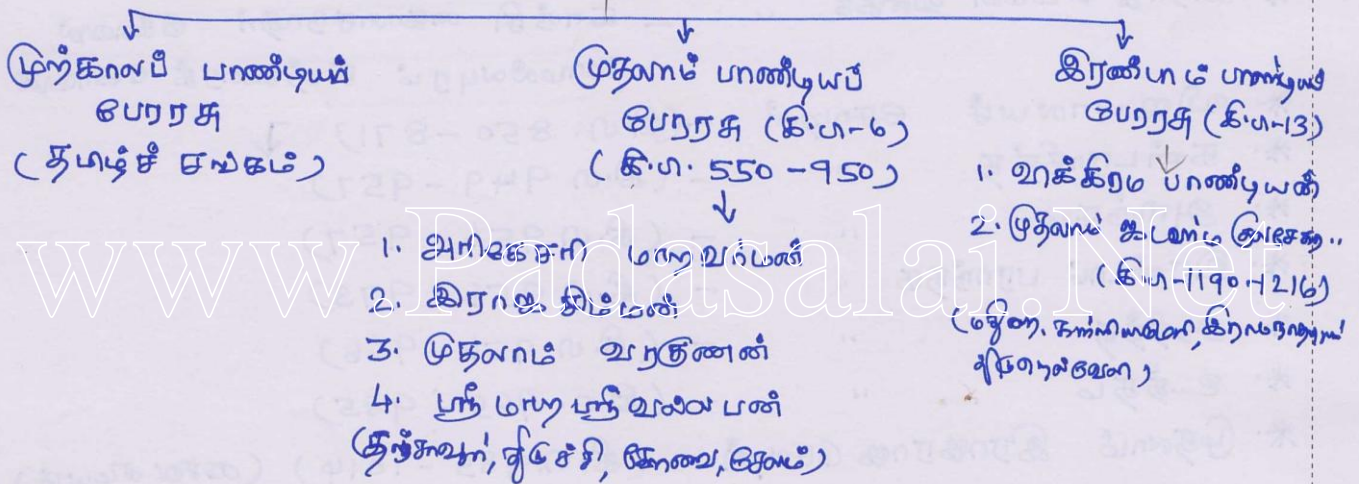 முற்காலப் பாண்டியப்
பேரரசு
(தமிழ்ச் சங்கம்)
முதலாம் பாண்டியப்
பேரரசு (கி.பி-6)
(கி.பி. 550 - 950)
1. அரிகேசரி மாறவர்மன்
2. இராஜசிம்மன்
3. முதலாம் வரகுணன்
4. ஸ்ரீ மாற ஸ்ரீ வல்லபன்
(தஞ்சாவூர், திருச்சி, கோவை, சேலம்)
இரண்டாம் பாண்டியப்
பேரரசு (கி.பி-13)
1. விக்கிரம பாண்டியன்
2. முதலாம் சடவர்ம குலசேகர..
(கி.பி-1190-1216)
(மதுரை, கன்னியாகுமரி, இராமநாதபுரம்
திருநெல்வேலி)
www.Padasalai.Net